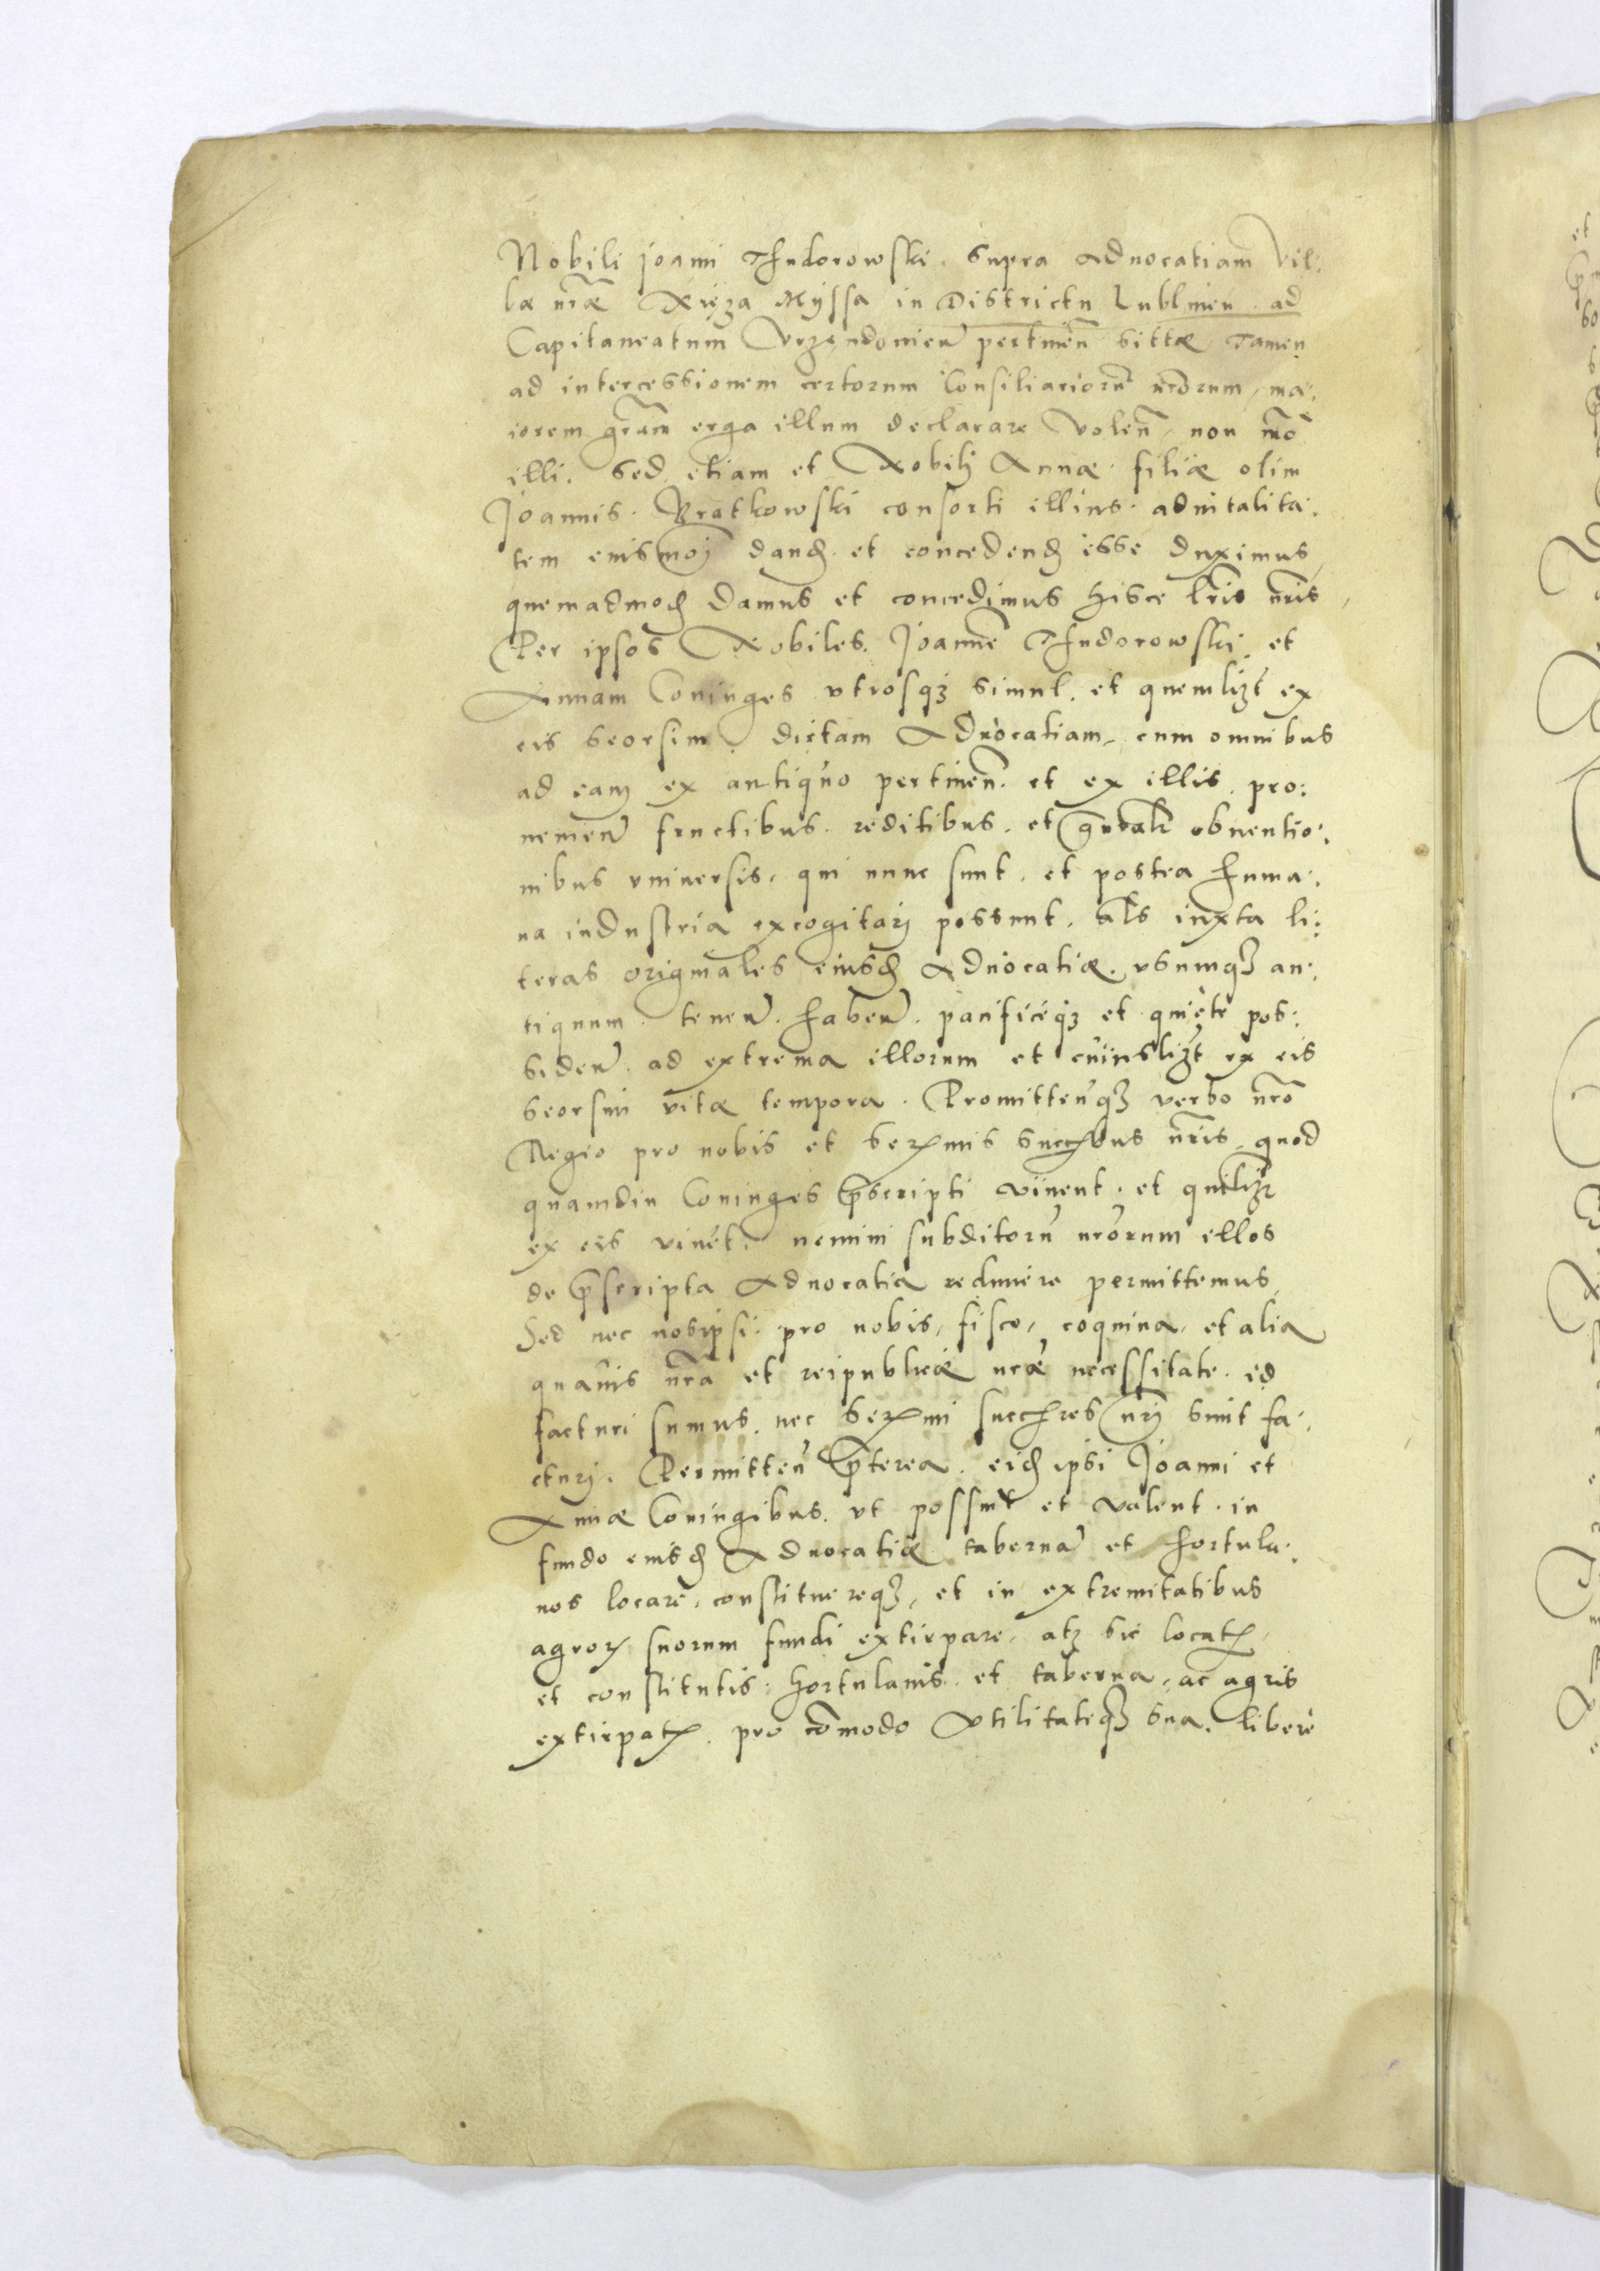 Nobili Joanni Thudorowski. supra Aduocatiam vil:
læ nr̃æ Xięza Myssa in Districtu Lublinen. ad
Capitaneatum Vrzendouieñ pertineñ sittæ Tamen
ad intercessionem certorum Consiliariorũ nr̃orum, ma:
iorem gr̃am erga illum declarare voleñ, non mõ
illi. sed etiam et Nobili Annæ. filiæ olim
Joannis. Bratkowski consorti illius. aduitalita:
tem eiusmoj dand. et concedend esse duximus,
quemadmod damus et concedimus hisce lr̃is nr̃is,
Per ipsos Nobiles. Joannẽ Thudorowski. et
Annam Coniuges vtrosqз simul. et quemlizt ex
eis seorsim. dictam Aduocatiam, cum omnibus
ad eam ex antiquo pertineñ. et ex illis. pro:
uenieñ fructibus. reditibus. et gñralr obuentio:
nibus vniuersis, qui nunc sunt. et postea huma:
na industria excogitarj possunt. als iuxta li:
teras originales eiusd Aduocatiæ. vsumqз an:
tiquum. teneñ. habeñ. pacificeqз et quiete pos:
sideñ. ad extrema illorum et cuiuslizt ex eis
seorsim vitæ tempora. Promitteñqз verbo nr̃o
Regio pro nobis et serenmis succribus nr̃is, quod
quamdiu Coniuges p̃scripti viuent. et quilizt
ex eis viuet. nemini subditorũ nr̃orum ellos
de p̃scripta Aduocatia redimere permittemus,
Sed nec nosipsi. pro nobis, fisco, coquina, et alia
quauis nr̃a et reipublicæ nr̃æ necessitate. id
facturi sumus. nec serenmi succres nrj sunt fa:
cturj. Permitteñ p̃terea. eisd ipsi Joanni et
Annæ Coniugibus. vt possint et valent. in
fundo eiusd Aduocatiæ tabernã et hortula:
nos locare, constituereqз, et in extremitatibus
agror suorum fundi extirpare, atqз sic locatis,
et constitutis: hortulanis. et taberna, ac agris
extirpatis. pro cõmodo vtilitateqз sua. libere